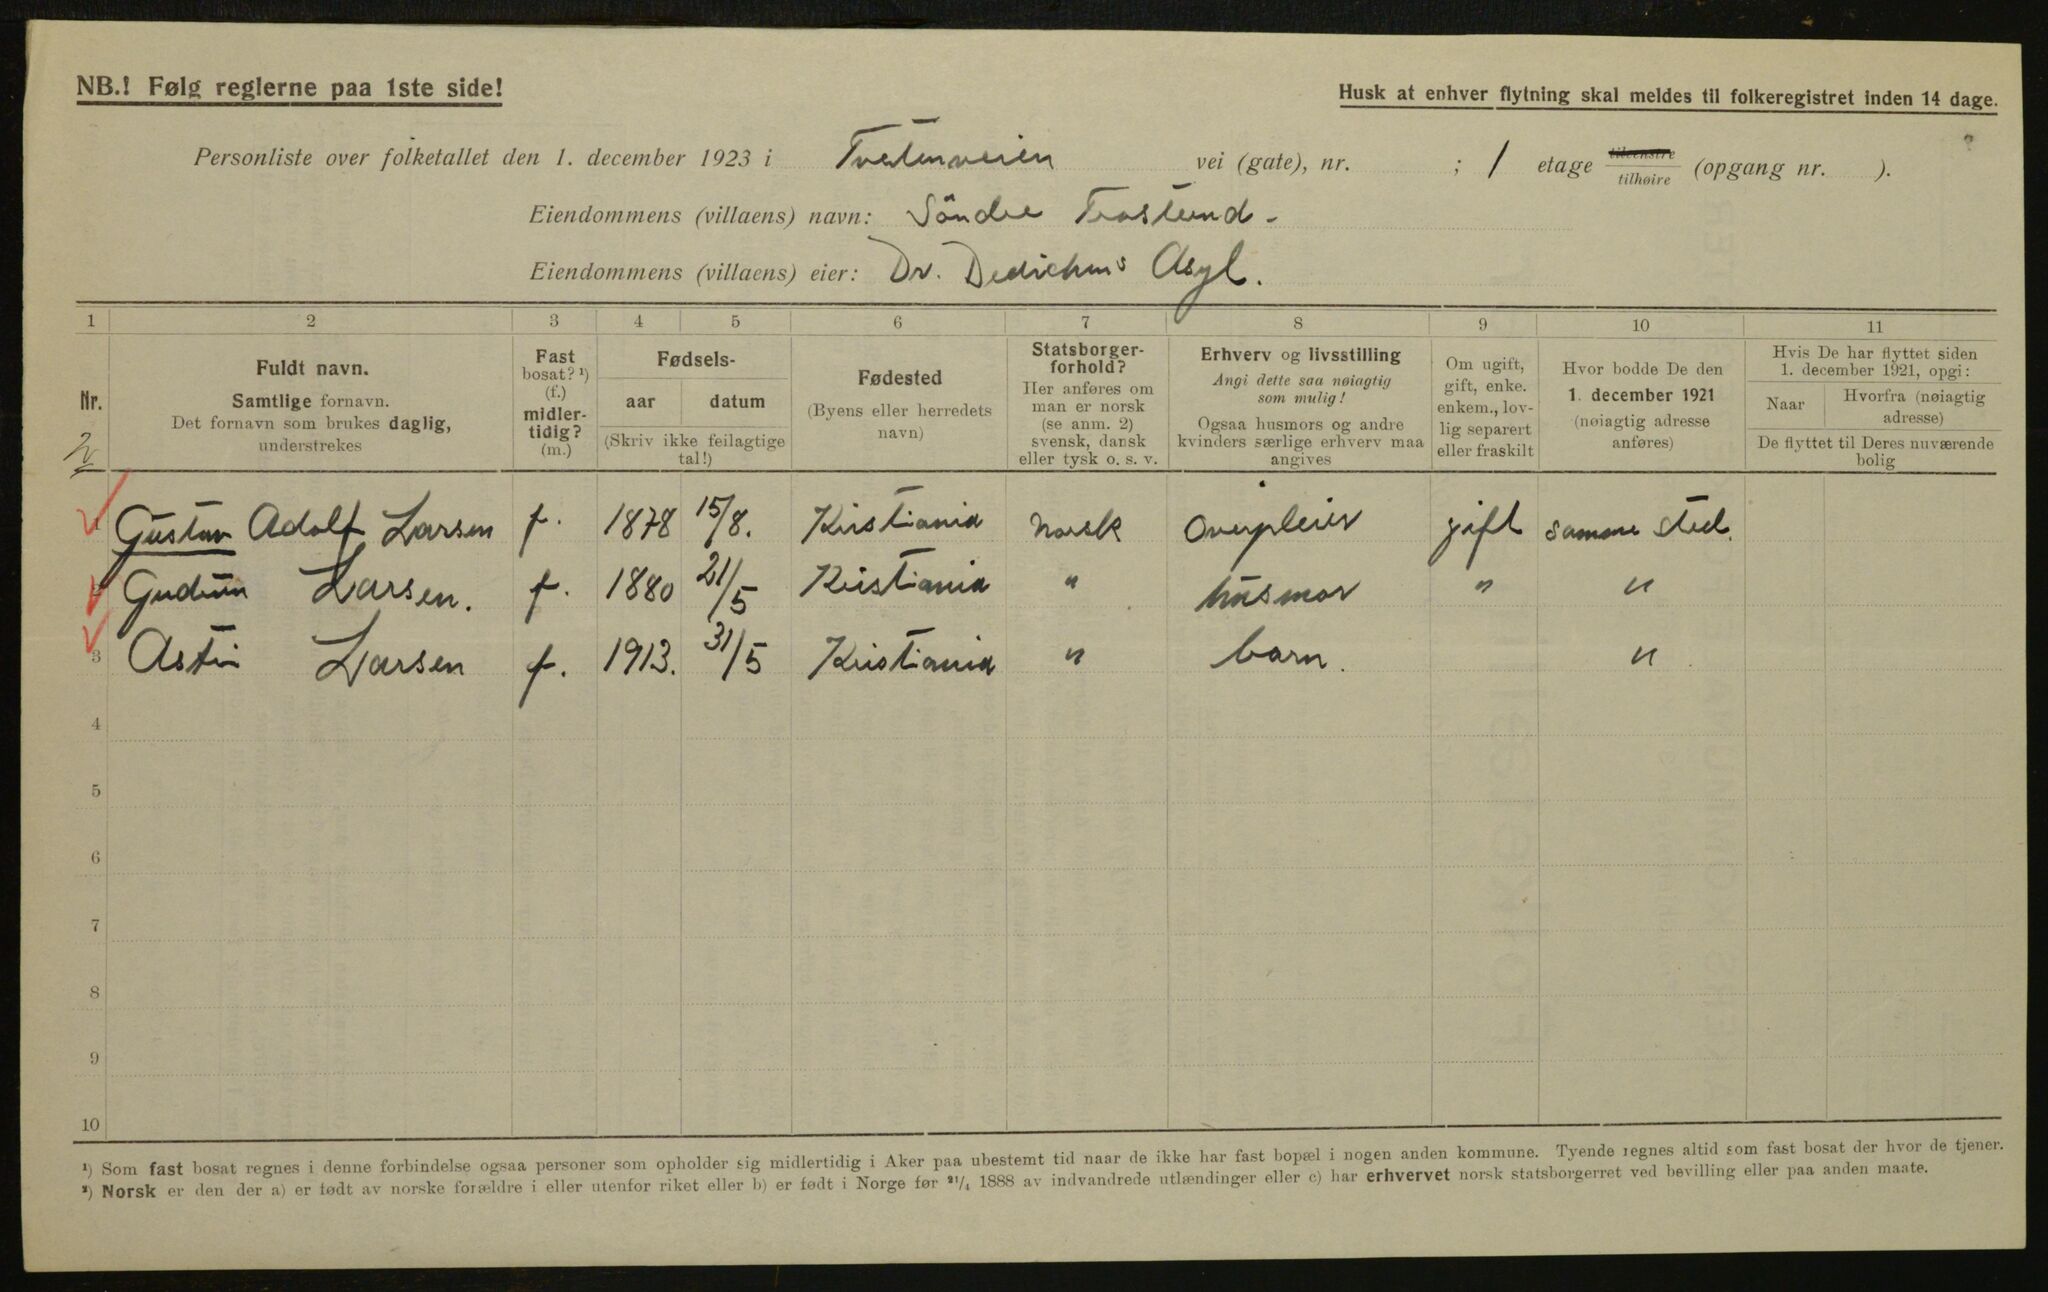 NB.! Følg reglerne paa 1ste side!
Husk at enhver flytning skal meldes til folkeregistret inden 14 dage.
Personliste over folketallet den 1. december 1923 i Tvetenveien vei (gate), nr. ; 1 etage tilvenstre tilhøire (opgang nr. ).
Eiendommens (villaens) navn: Söndre Trosterud -
Eiendommens (villaens) eier: Dr. Dedichens Asyl.
1 2 3 4 5 6 7 8 9 10 11
Nr.
Fuldt navn.
Samtlige fornavn.
Det fornavn som brukes daglig,
understrekes
Fast
bosat? ¹)
(f.)
midler-
tidig?
(m.)
Fødsels-
aar datum
(Skriv ikke feilagtige
tal!)
Fødested
(Byens eller herredets
navn)
Statsborger-
forhold?
Her anføres om
man er norsk
(se anm. 2)
svensk, dansk
eller tysk o. s. v.
Erhverv og livsstilling
Angi dette saa nøiagtig
som mulig!
Ogsaa husmors og andre
kvinders særlige erhverv maa
angives
Om ugift,
gift, enke.
enkem., lov-
lig separert
eller fraskilt
Hvor bodde De den
1. december 1921
(nøiagtig adresse
anføres)
Hvis De har flyttet siden
1. december 1921, opgi:
Naar
Hvorfra (nøiagtig
adresse)
De flyttet til Deres nuværende
bolig
1 Gustav Adolf Larsen f. 1878 15/8. Kristiania Norsk Overpleier gift samme sted.
2 Gudrun Larsen. f. 1880 21/5 Kristiania " husmor " "
3 Astri Larsen f. 1913. 31/5 Kristiania " barn. "
4
5
6
7
8
9
10
¹) Som fast bosat regnes i denne forbindelse ogsaa personer som opholder sig midlertidig i Aker paa ubestemt tid naar de ikke har fast bopæl i nogen anden kommune. Tyende regnes altid som fast bosat der hvor de tjener.
²) Norsk er den der a) er født av norske forældre i eller utenfor riket eller b) er født i Norge før ²¹/₄ 1888 av indvandrede utlændinger eller c) har erhvervet norsk statsborgerret ved bevilling eller paa anden maate.